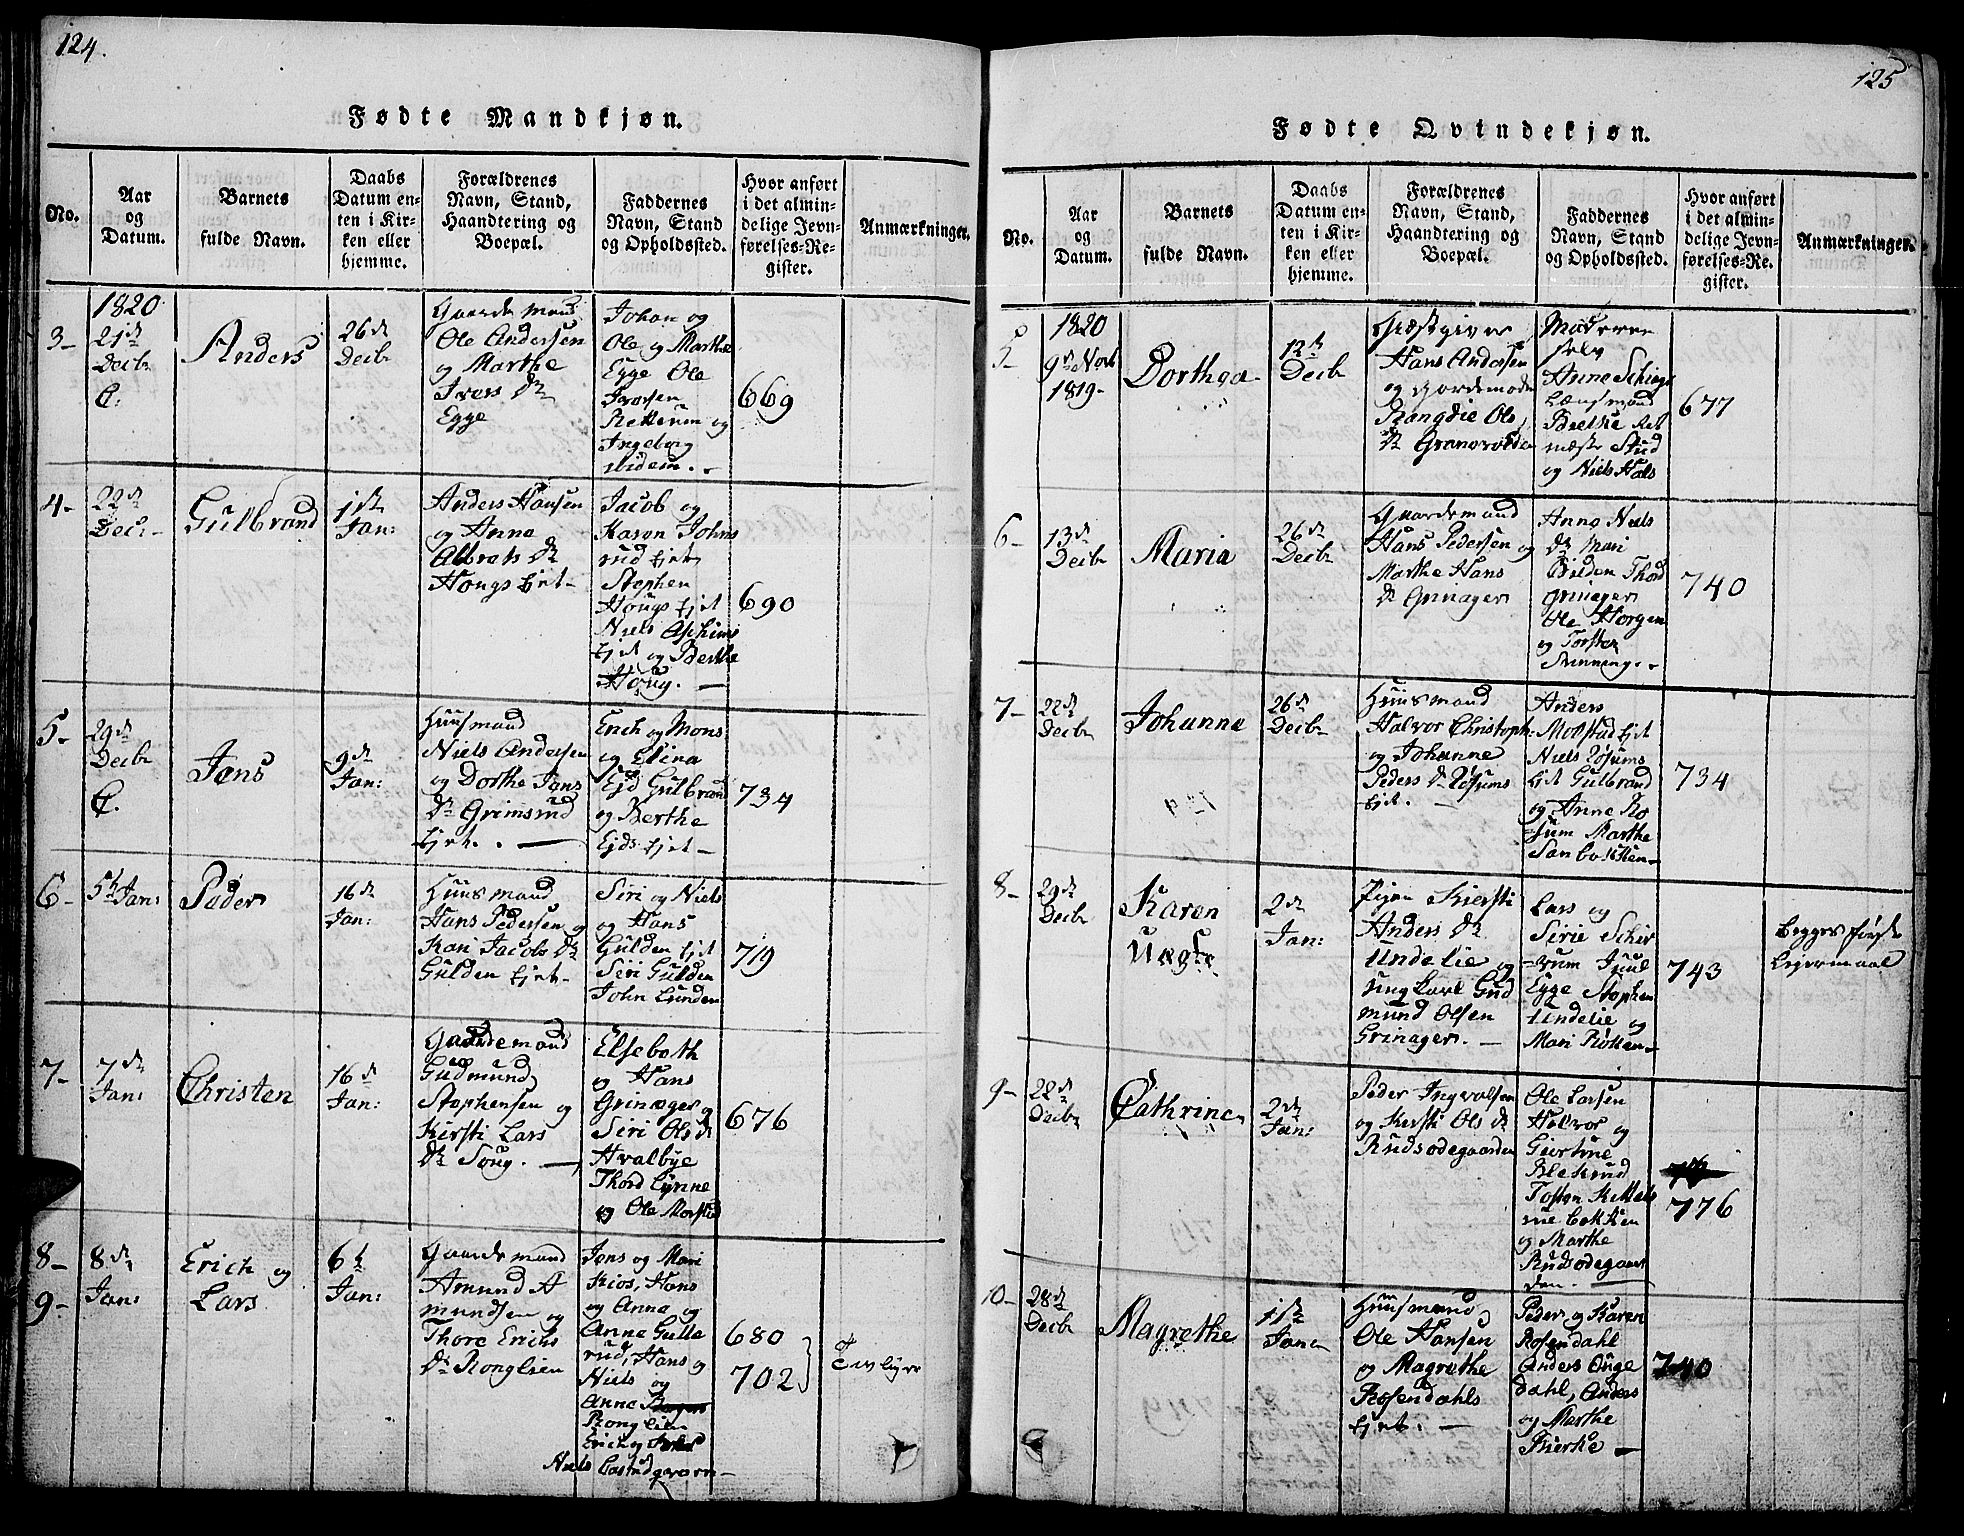 124.
Fødte Mandkjøn.
No.
Aar
og
Datum.
Barnets
fulde Navn.
Daabs
Datum en-
ten i Kir-
ken eller
hjemme.
Forældrenes
Navn, Stand,
Haandtering og
Boepæl.
Faddernes
Navn, Stand
og Opholdssted.
Hvor anført
i det almin-
delige Jevn-
førelses-Re-
gister.
Anmærkninger.
3-
1820
21de
Decbr
C.
Anders
26de
Decbr
Gaardemand
Ole Andersen
og Marthe
Ivers Dr
Egge
Johan og
Ole og Marthe
Egge Ole
Iversen
og
Ingeborg
ibidem.
669
4-
22de
Decbr
Gulbrand
1ste
Jan:
Anders Hansen
og Anne
Albrets Dr
Hougs Ejet-
Jacob og
Karen Johns
rud Ejet
Stephen
Hougs Ejet
Niels Aschims
Ejet og Berthe
Houg. -
690
5-
29de
Decbr
C.
Jens
9de
Jan:
Huusmand
Niels Andersen
og Dorthe Jens
Dr Grimsrud
Ejet. -
Erich og Mons
og Elina
Ejd Gulbrand
og Berthe
Ejds Ejet-
734
6-
5te Jan:
Peder
16de
Jan:
Huusmand
Hans Pedersen og
Kari Jacobs Dr
Gulden Ejet-
Siri og Niels
og Hans
Gulden Ejet
Siri Gulden
John Lunden
719
7-
7de
Jan:
Christen
16de
Jan:
Gaardemand
Gudmund
Stephensen og
Kirsti Lars
Dr Houg. -
Elsebeth
og Hans
Grinager og
Siri Ols Dr
Hvalbye
Thord Lynne
og Ole Morstad
676
8-
9-
8de
Jan:
Erich og
Lars
6te
Jan:
Gaardemand
Amund A
mundsen og
Thore Erichs
Dr Ronglien
Jens og Mari
Kios, Hans
og Anne og
Anne Gulle
rud, Hans og
Niels og
Anne
Ronglien
Erich og
Niels
680
702
Tvillinger
125
Fødte Qvindekjøn.
No.
Aar
og
Datum.
Barnets
fulde Navn.
Daabs
Datum en-
ten i Kir-
ken eller
hjemme.
Forældrenes
Navn, Stand,
Haandtering og
Boepæl.
Faddernes
Navn, Stand
og Opholdssted.
Hvor anført
i det almin-
delige Jevn-
førelses-Re-
gister.
Anmærkninger.
5-
1820
9de Novb
1819-
Dorthea
12te
Decbr
Giæstgiver
Hans Andersen
og
Rangdie Ols
Dr Granvolden
Moderen
selv
Anne
Lensmand
Brethe
Stud
og Niels Hals
677
6-
13de
Decbr
Maria
26de
Decbr
Gaardemand
Hans Pedersen og
Marthe Hans
Dr Grinager
Anne Niels
Dr Mari
Bilden Thord
Grinager
Ole Horgen
og Torsten
740
7-
22de
Decbr
Johanne
26de
Decbr
Huusmand
Halvor Christoph.
og Johanne
Peders Dr Røsums
Ejet. -
Anders
Mollstad Ejet
Niels Røsums
Ejet Gulbrand
og Anne Rø
sum Marthe
734
8-
29de
Decbr
Karen
Uægte
2de
Jan:
Pigen Kiersti
Anders Dr
Undelie og
ung Karl Gud
mund Olsen
Grinager. -
Lars og
Sirie Schir
rum Juul
Egge Stephen
Undelie og
Mari Røkken-
743
Begges første
Leiermaal
9-
28de
Decbr
Cathrine
2de
Jan:
Peder Ingvalsen
og Kirsti Ols Dr
Rudsødegaarden
Ole Larsen
Halvor og
Giertrue
Blekrud
Tosten
og Marthe
Rudsødegaar
den. -
776
10-
28de
Decbr
Magrethe
1ste
Jan
Huusmand
Ole Hansen
og Magrethe
Rosendahls
Ejet. -
Peder og Karen
Rosendahl
Anders Ouge
dahl, Anders
og Marthe
Bierke -
740